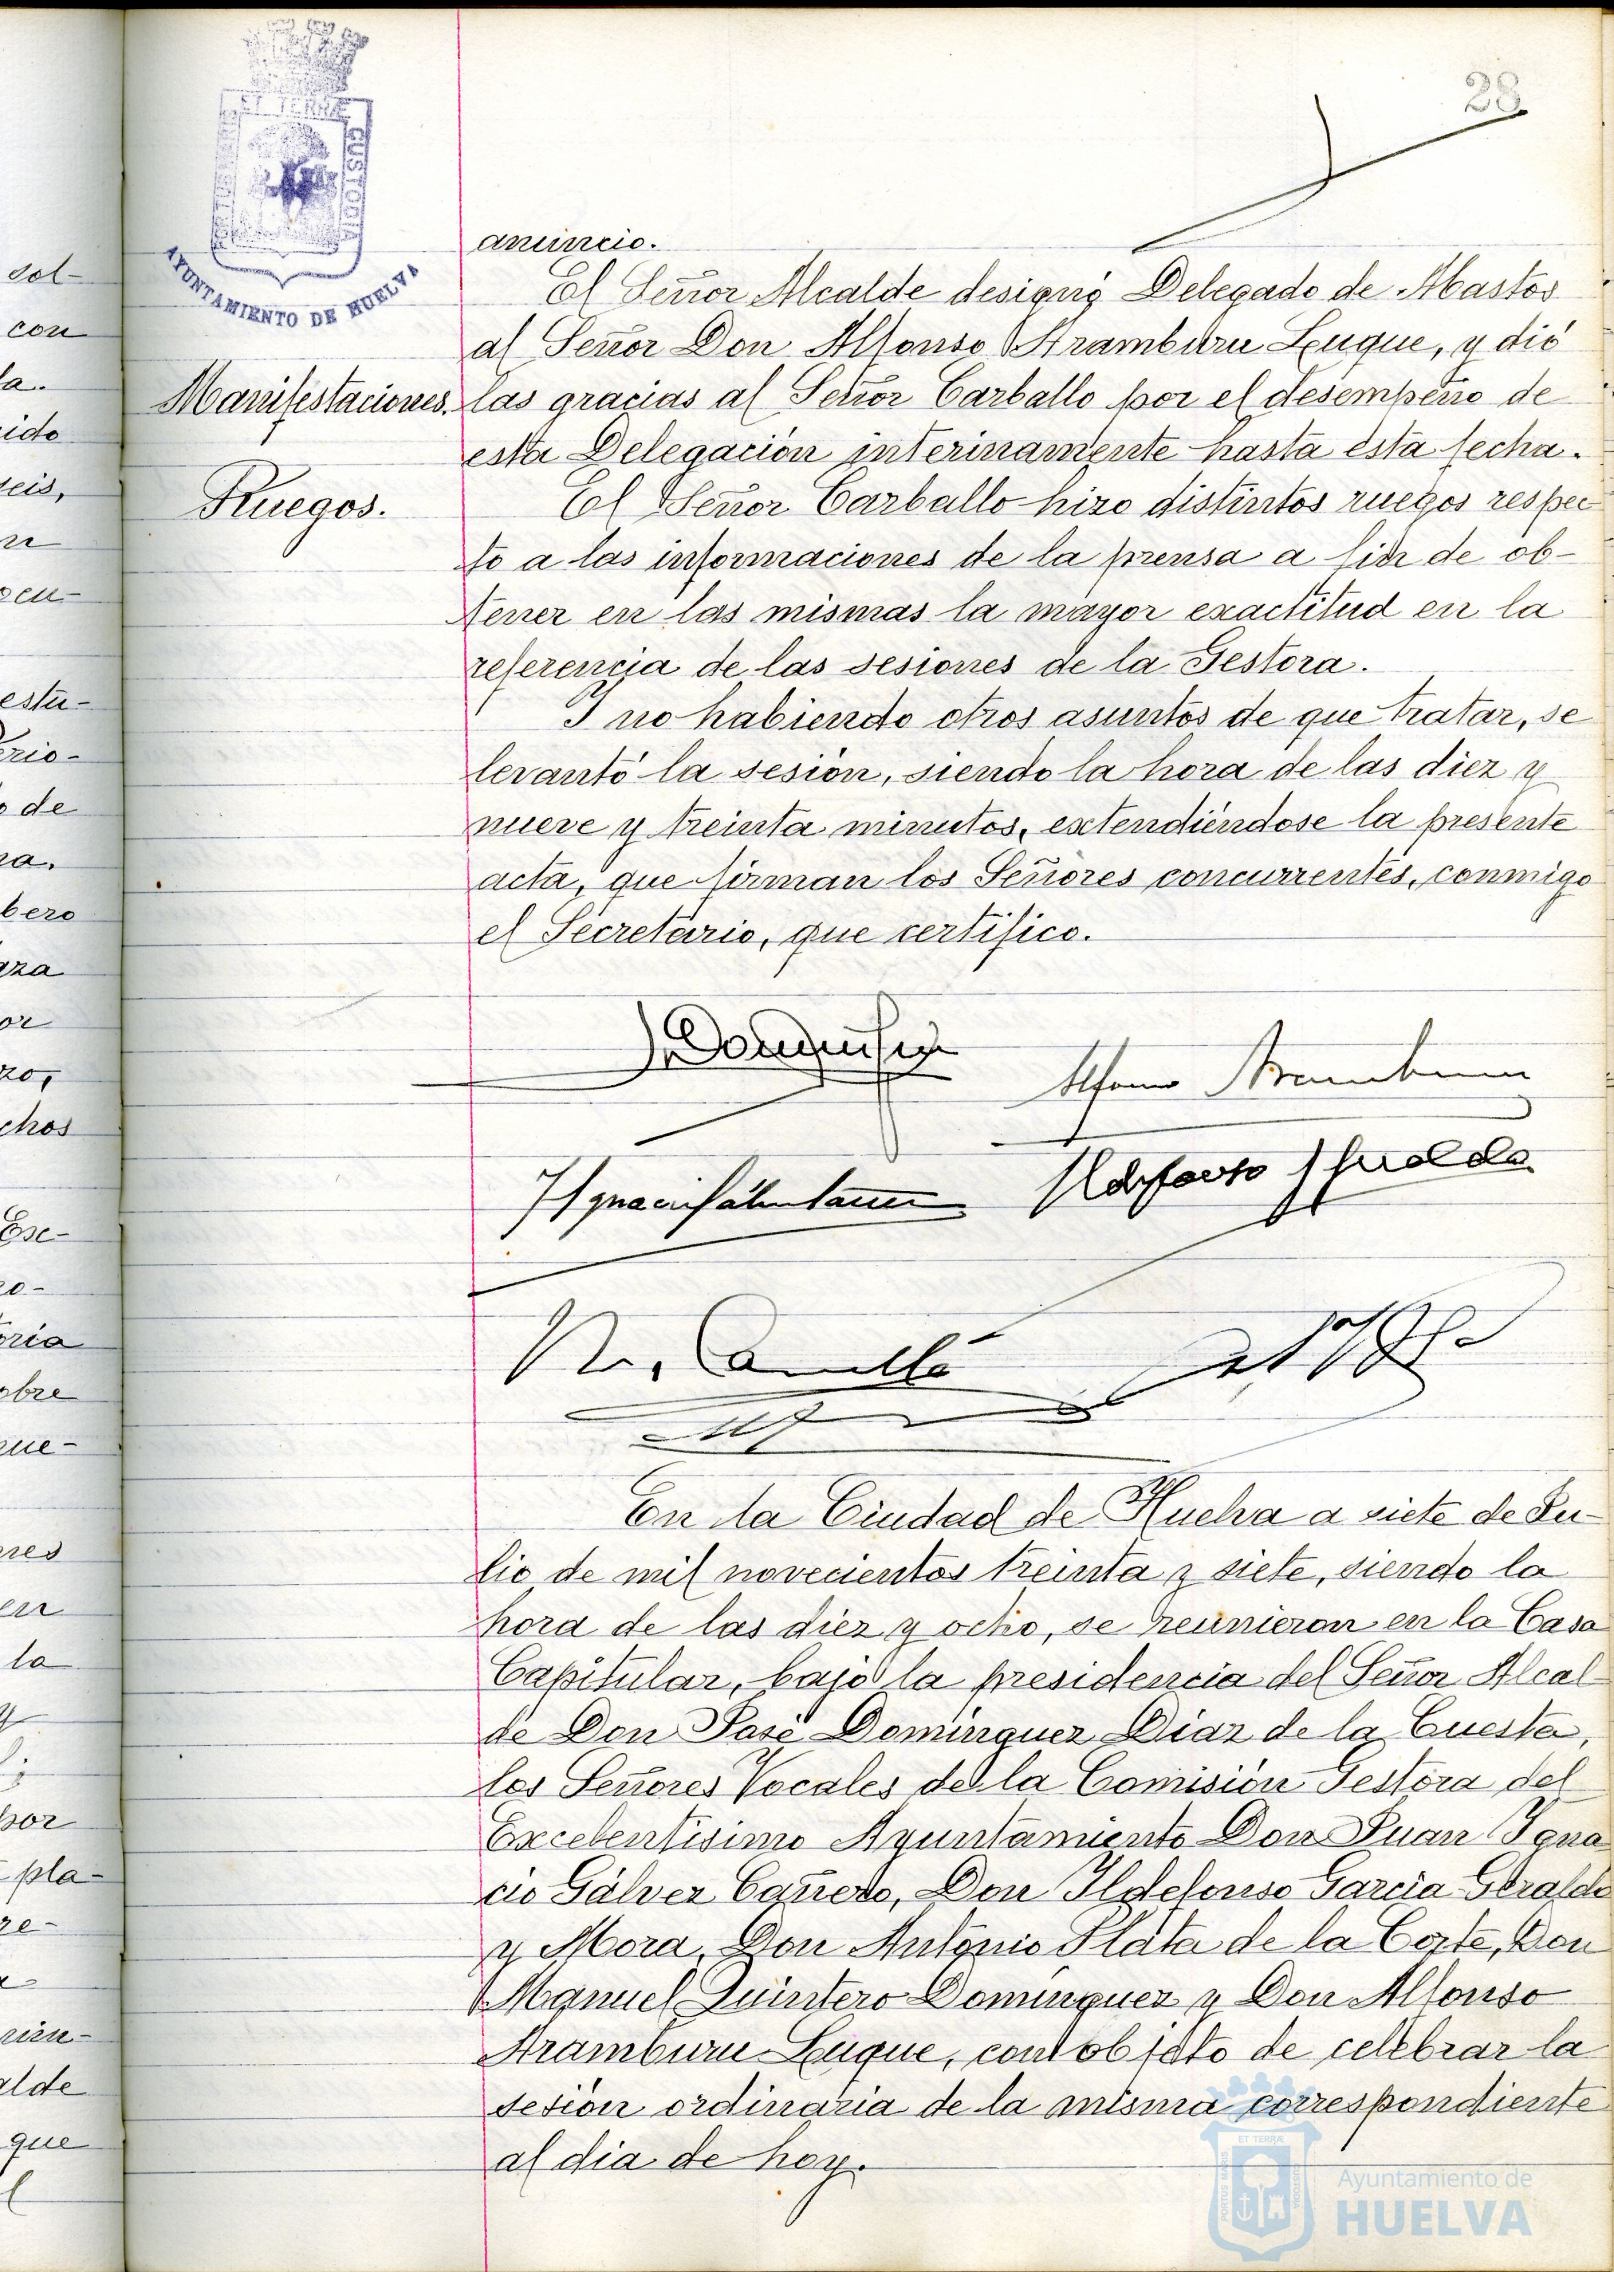 28
ET TERRÆ
CUSTODIA
AYUNTAMIENTO DE HUELVA
anuncio.
El Señor Alcalde designó Delegado de Abastos
al Señor Don Alfonso Aramburu Luque, y dió
Manifestaciones. las gracias al Señor Carballo por el desempeño de
esta Delegación interinamente hasta esta fecha.
Ruegos. El Señor Carballo hizo distintos ruegos respec-
to a las informaciones de la prensa a fin de ob-
tener en las mismas la mayor exactitud en la
referencia de las sesiones de la Gestora.
Y no habiendo otros asuntos de que tratar, se
levantó la sesión, siendo la hora de las diez y
nueve y treinta minutos, extendiéndose la presente
acta, que firman los Señores concurrentes, conmigo
el Secretario, que certifico.
Alfonso Aramburu
En la Ciudad de Huelva a siete de Ju-
lio de mil novecientos treinta y siete, siendo la
hora de las diez y ocho, se reunieron en la Casa
Capitular, bajo la presidencia del Señor Alcal-
de Don José Dominguez Diaz de la Cuesta,
los Señores Vocales de la Comisión Gestora del
Excelentisimo Ayuntamiento Don Juan Igna
cio Gálvez Cañero, Don Ildefonso Garcia Geraldo
y Mora, Don Antonio Plata de la Corte, Don
Manuel Quintero Dominguez y Don Alfonso
Aramburu Luque, con objeto de celebrar la
sesión ordinaria de la misma correspondiente
al dia de hoy.
ET TERRÆ
PORTUS MARIS
CUSTODIA
Ayuntamiento de
HUELVA
sol-
con
la.
ido
seis,
estu-
erio-
de
bero
or
chos
Esc-
oria
obre
que-
en
la
por
pla-
re-
alde
que